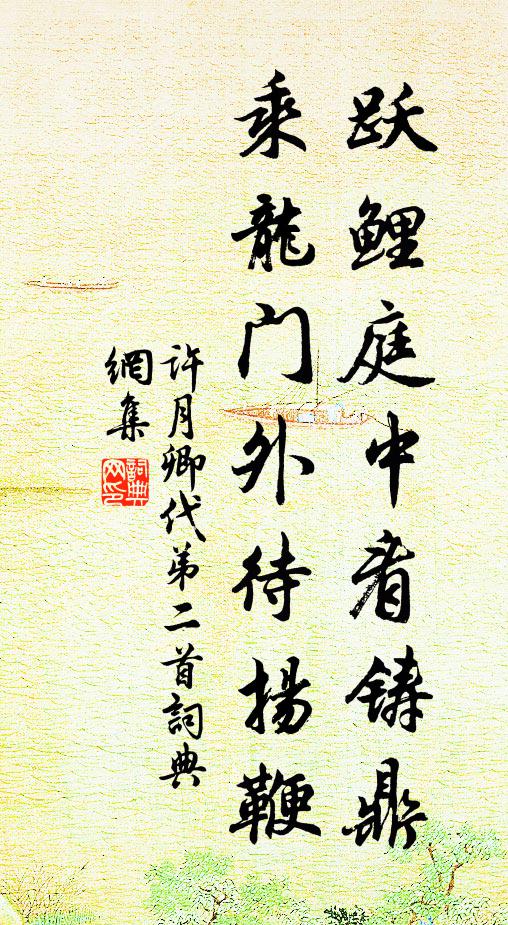 跃鲤庭中看铸鼎
乘龍门外待揚鞭
许月卿代第二首詞典
網集
詞典
网印